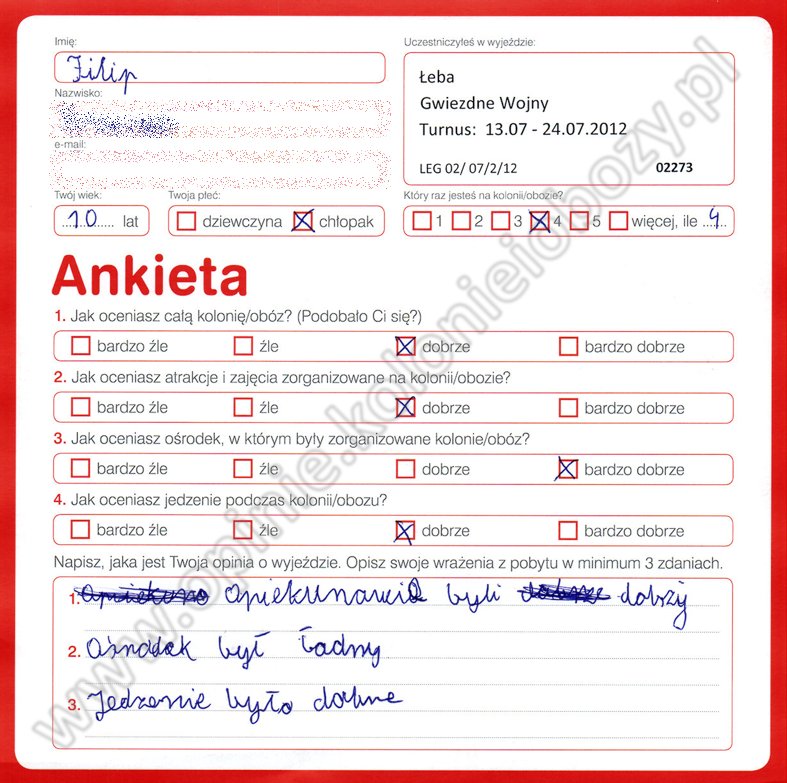 Imię:
Filip
Uczestniczyłeś w wyjeździe:
Łeba
Gwiezdne Wojny
Turnus: 13.07 - 24.07.2012
LEG 02/ 07/2/12 02273
Nazwisko:
e-mail:
Twój wiek:
10 lat
Twoja płeć:
dziewczyna chłopak
Który raz jesteś na kolonii/obozie?
1 2 3 4 5 więcej, ile 4
Ankieta
1. Jak oceniasz całą kolonię/obóz? (Podobało Ci się?)
bardzo źle źle dobrze bardzo dobrze
2. Jak oceniasz atrakcje i zajęcia zorganizowane na kolonii/obozie?
bardzo źle źle dobrze bardzo dobrze
3. Jak oceniasz ośrodek, w którym były zorganizowane kolonie/obóz?
bardzo źle źle dobrze bardzo dobrze
4. Jak oceniasz jedzenie podczas kolonii/obozu?
bardzo źle źle dobrze bardzo dobrze
Napisz, jaka jest Twoja opinia o wyjeździe. Opisz swoje wrażenia z pobytu w minimum 3 zdaniach.
1. byli dobrzy
2. Ośrodek był ładny
3. Jedzenie było dobrne
www.opinie.kolonieiobozy.pl